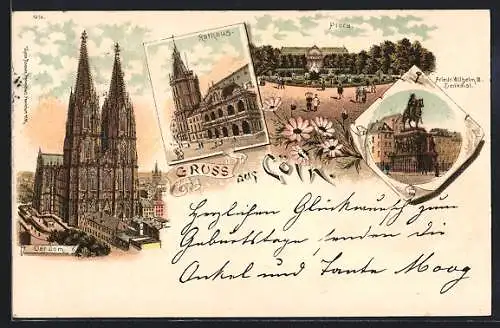 Rathhaus
Flora
Friedr. Wilhelm III. Denkmal.
GRUSS aus Cöln.
Der Dom.
Herzlichen Glückwunsch zum
Geburtstage, senden die
Onkel und Tante Moog